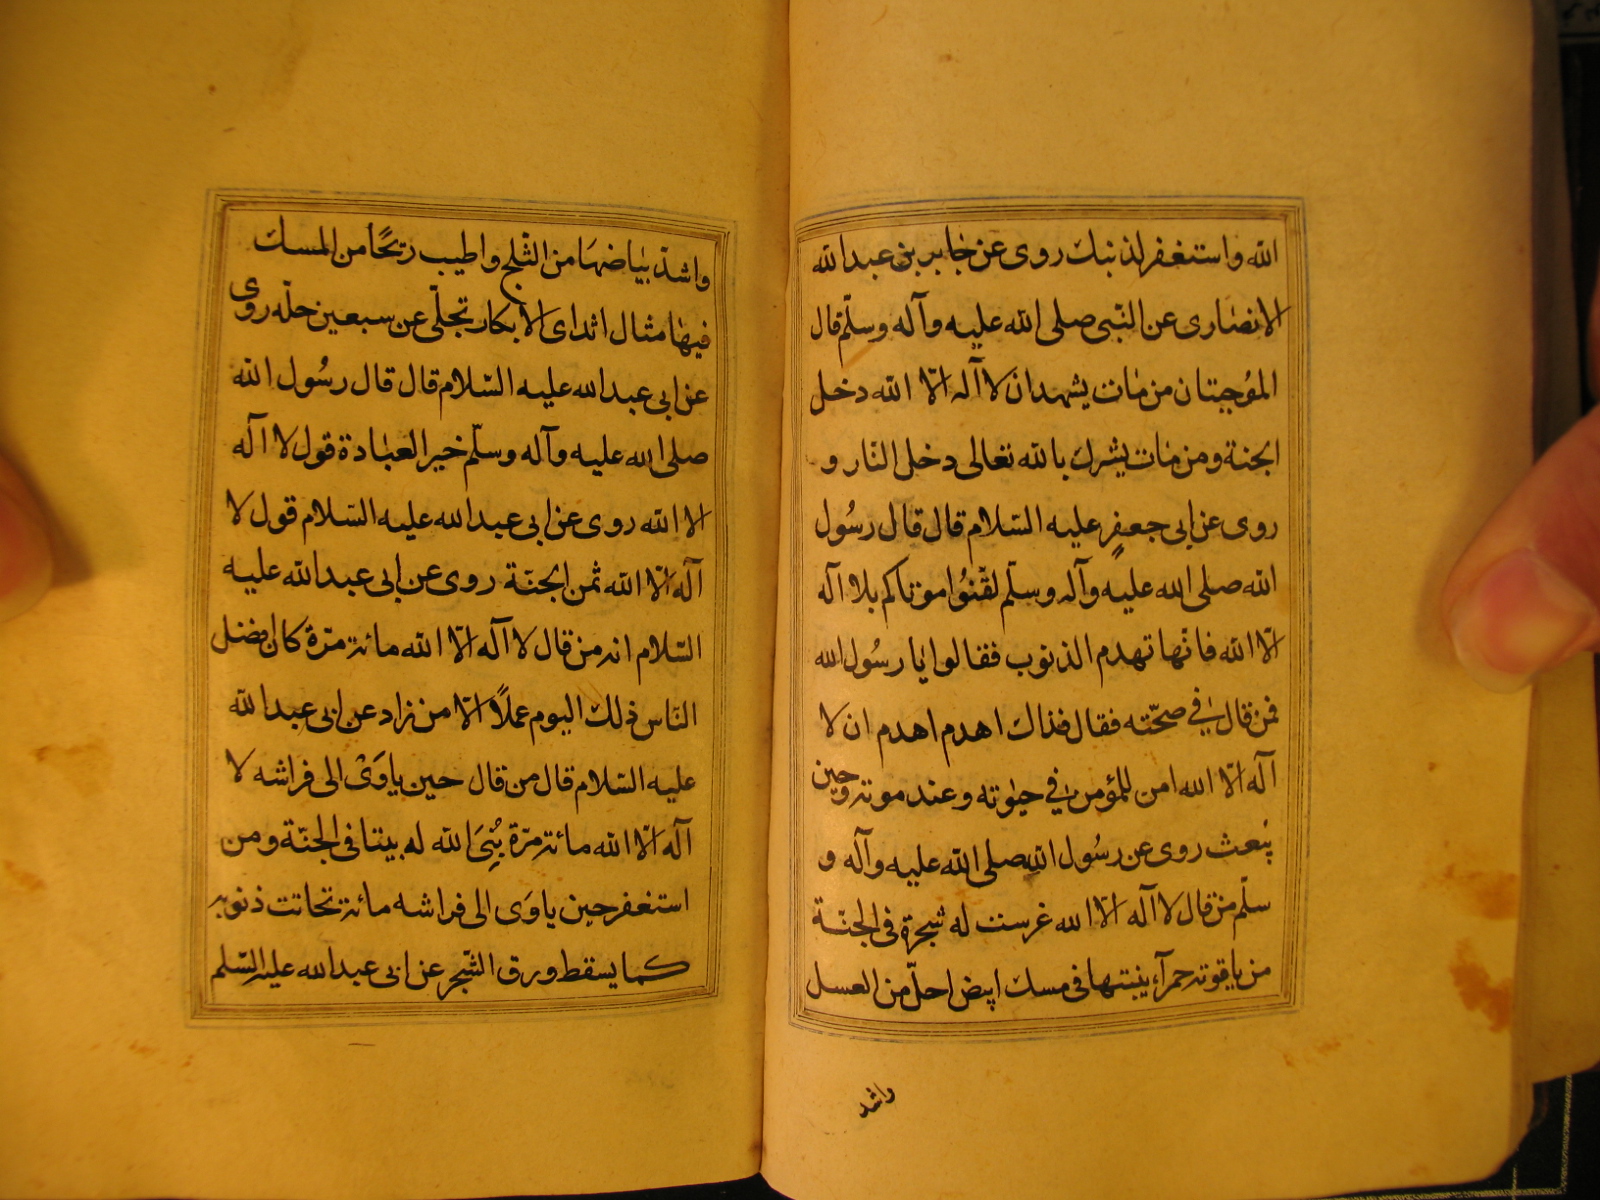 الله واستغفر لذنبك روى عن جابر بن عبد الله
الانصارى عن النبى صلى الله عليه وآله وسلّم قال
الموجبتان من مات يشهد ان لا آله الّا الله دخل
الجنة ومن مات يشرك بالله تعالى دخل النار و
روى عن ابى جعفر عليه السّلام قال قال رسُول
الله صلى الله عليه وآله وسلّم لقّنُوا موتاكم بلا آله
الّا الله فانّها تهدم الذنوب فقالوا يا رسُول الله
فمن قال فى صحّته فقال فذاك اهدم اهدم ان لا
آله الّا الله امن للمؤمن فى حيوته وعند موته وحين
يبعث روى عن رسُول الله صلى الله عليه وآله و
سلّم من قال لا آله الّا الله غرست له شجرة فى الجنّة
من ياقوته حمرآء ينبتها فى مسك ابيض احلّ من العسل
واشد
واشدّ بياضهَا من الثّلج واطيب ريحًا من المسك
فيها مثال اثداى الابكار تجلّى عن سبعين حلّه روى
عن ابى عبد الله عليه السّلام قال قال رسُول الله
صلى الله عليه وآله وسلّم خير العبادة قول لا آله
الا الله روى عن ابى عبد الله عليه السّلام قول لا
آله الّا الله ثمن الجنّة روى عن ابى عبد الله عليه
السّلام انه من قال لا آله الّا الله مائة مرّة كان افضل
النّاس ذلك اليوم عملاً الّا من زاد عن ابى عبد الله
عليه السّلام قال من قال حين ياوَى الى فراشه لا
آله الّا الله مائة مرّة بُنِىَ الله له بيتا فى الجنّة ومن
استغفر حين ياوَى الى فراشه مائة تحاتت ذنوبه
كما يسقط ورق الشّجر عن ابى عبد الله عليه السّلم